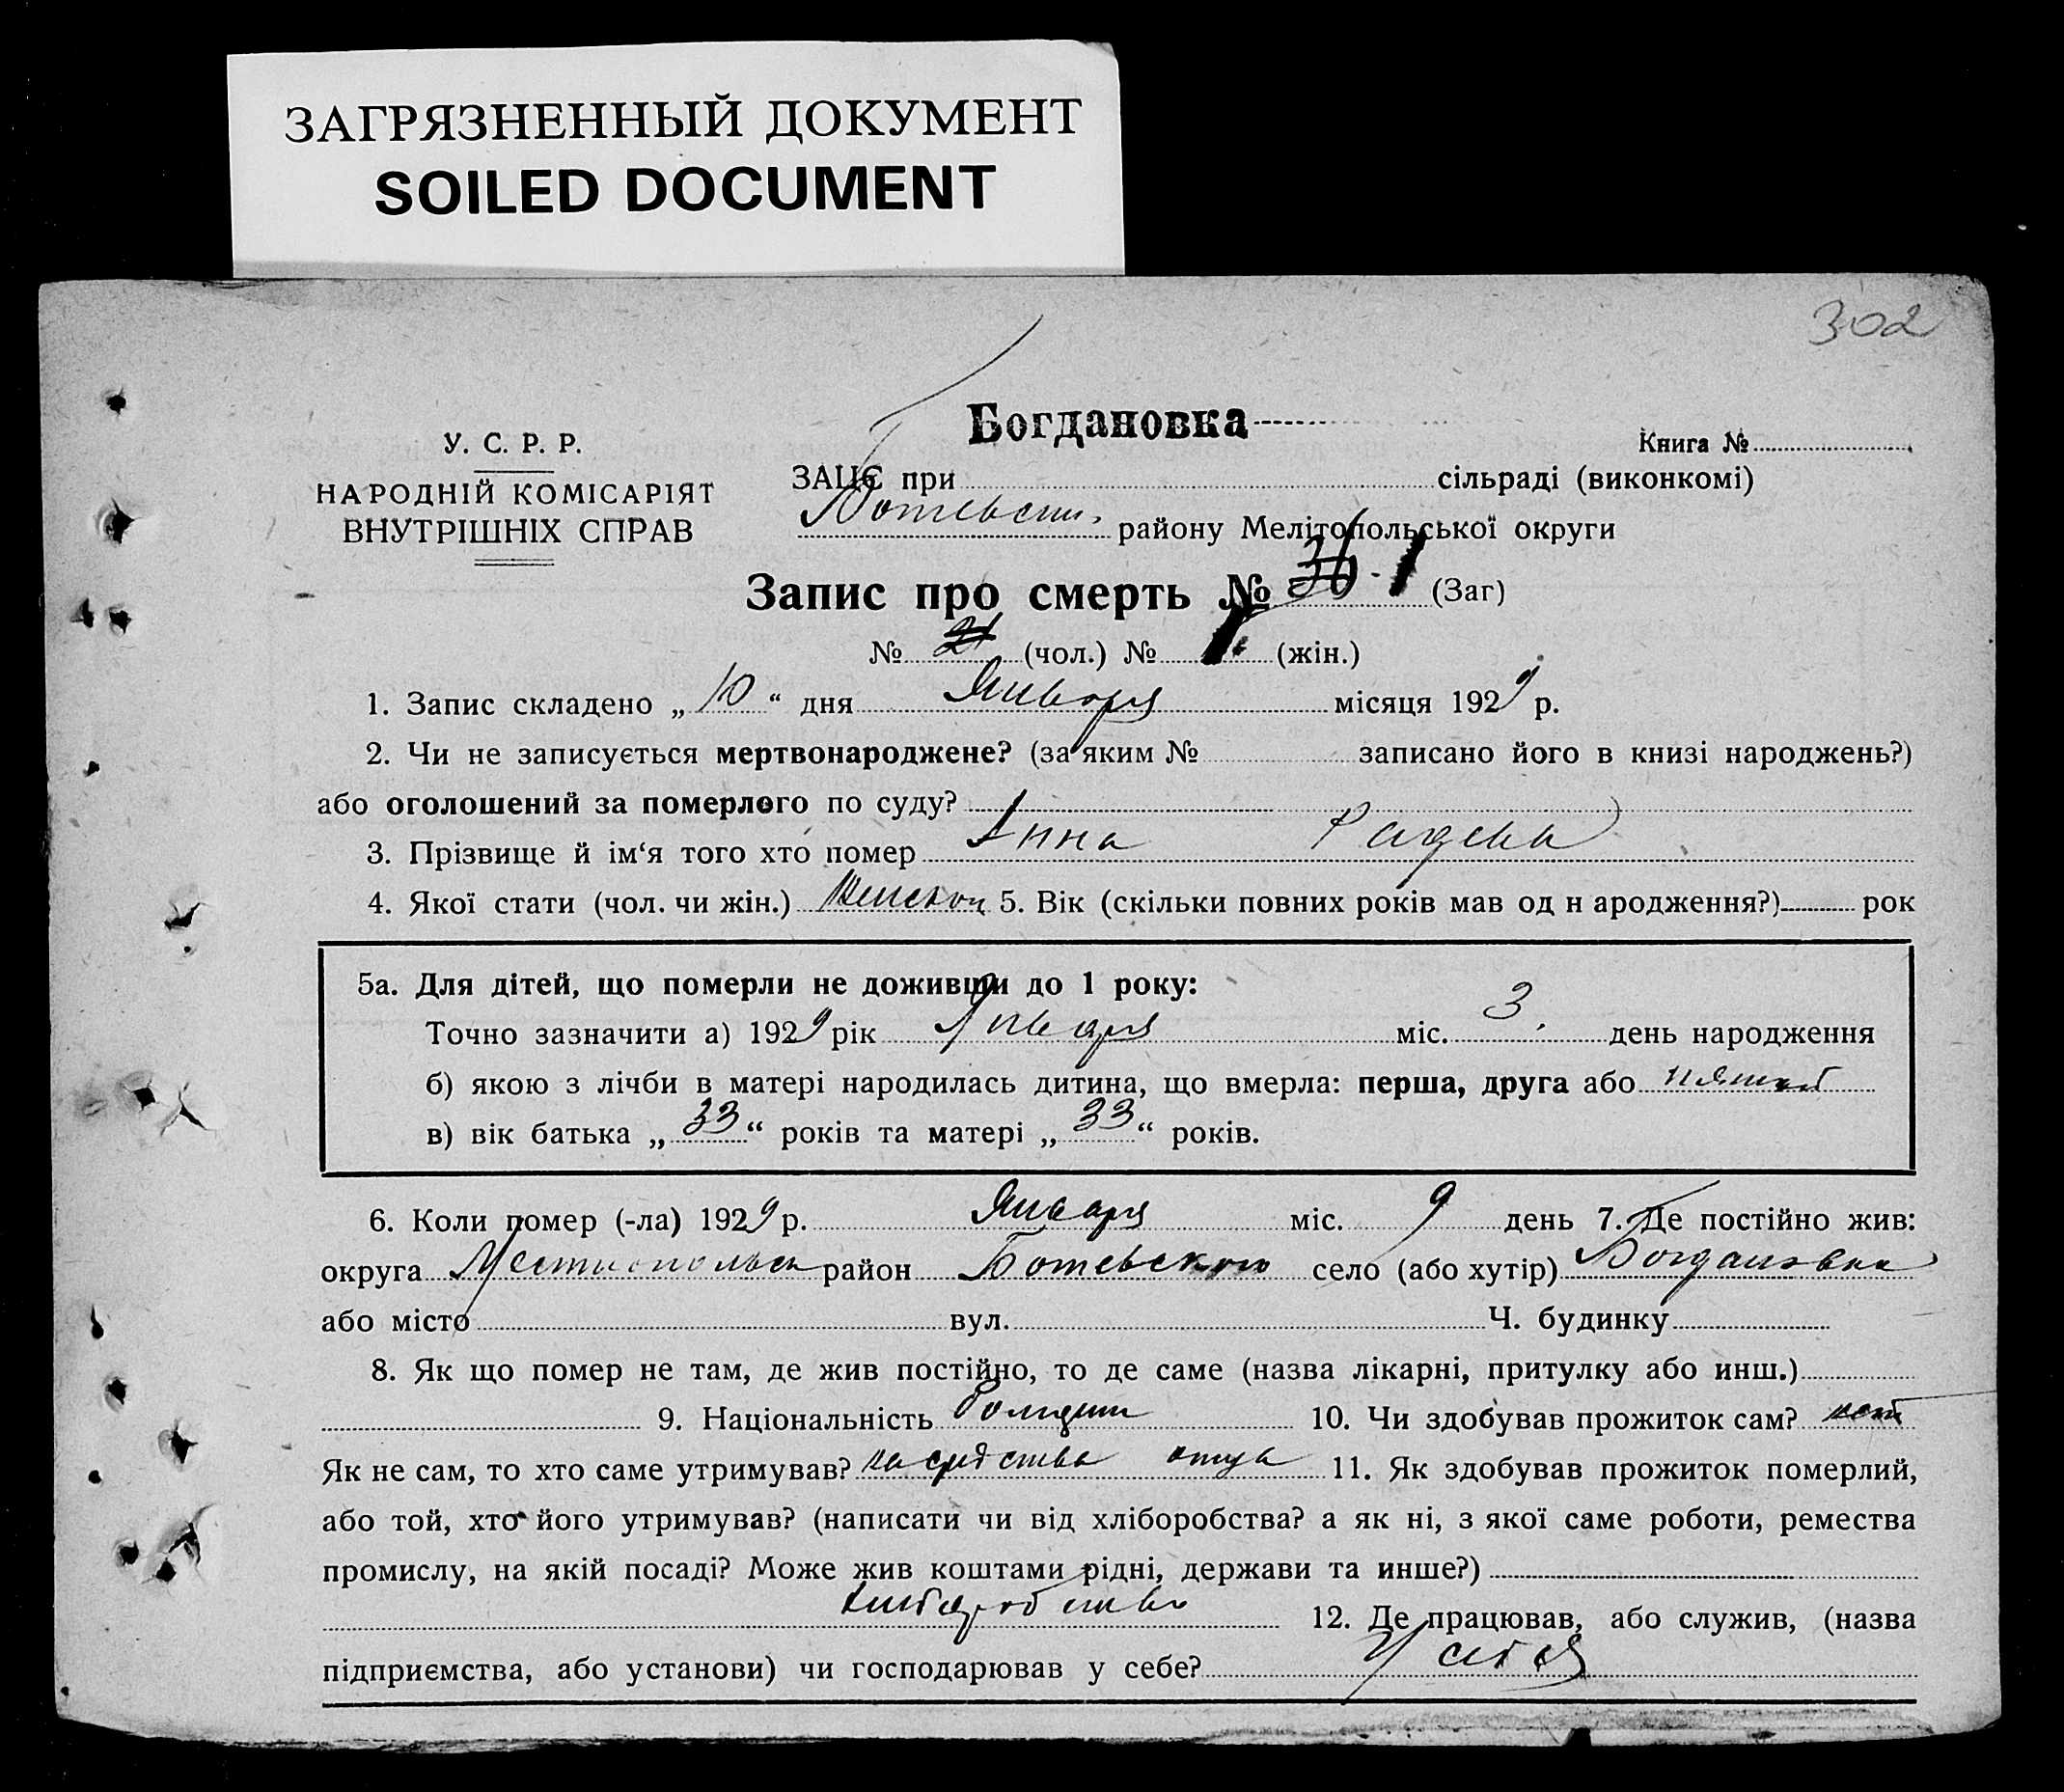 ЗАГРЯЗНЕННЫЙ ДОКУМЕНТ
SOILED DOCUMENT
302
Богдановка
У. С. Р. Р.
Книга №
НАРОДНІЙ КОМІСАРІЯТ
ВНУТРІШНІХ СПРАВ
ЗАЦЄ при сільраді (виконкомі)
Ботевськ. району Мелітопольської округи
Запис про смерть № 36 1 (Заг)
№ 21 (чол.) № 1 (жін.)
1. Запис складено „ 10 “ дня Января місяця 1929 р.
2. Чи не записується мертвонароджене? (за яким № записано його в книзі народжень?)
або оголошений за померлого по суду?
3. Прізвище й ім‘я того хто помер Анна Радева
4. Якої стати (чол. чи жін.) Женской 5. Вік (скільки повних років мав од н ародження?) рок
5а. Для дітей, що померли не доживши до 1 року:
Точно зазначити а) 1929 рік Января міс. 3. день народження
б) якою з лічби в матері народилась дитина, що вмерла: перша, друга або пятой
в) вік батька „ 33 “ років та матері „ 33 “ років.
6. Коли помер (-ла) 1929 р. Января міс. 9 день 7. Де постійно жив:
округа Мелитопольск район Ботевского село (або хутір) Богдановка
або місто вул. Ч. будинку
8. Як що помер не там, де жив постійно, то де саме (назва лікарні, притулку або инш.)
9. Національність 10. Чи здобував прожиток сам? нет
Як не сам, то хто саме утримував? на средства отца 11. Як здобував прожиток померлий,
або той, хто його утримував? (написати чи від хліборобства? а як ні, з якої саме роботи, ремества
промислу, на якій посаді? Може жив коштами рідні, держави та инше?)
12. Де працював, або служив, (назва
підприємства, або установи) чи господарював у себе? У себя